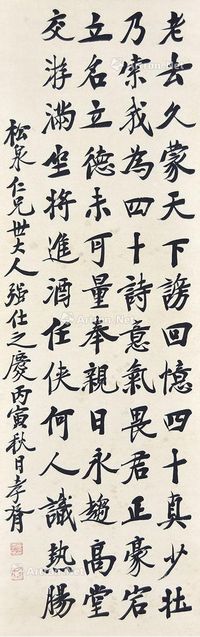 老去久蒙天下謗回憶四十真少壮
乃索我為四十詩意氣畏君正豪宕
立名立德未可量奉親日永趨高堂
交游滿坐將進酒任俠何人識熱腸
松泉仁兄世大人强仕之慶丙寅秋日孝胥